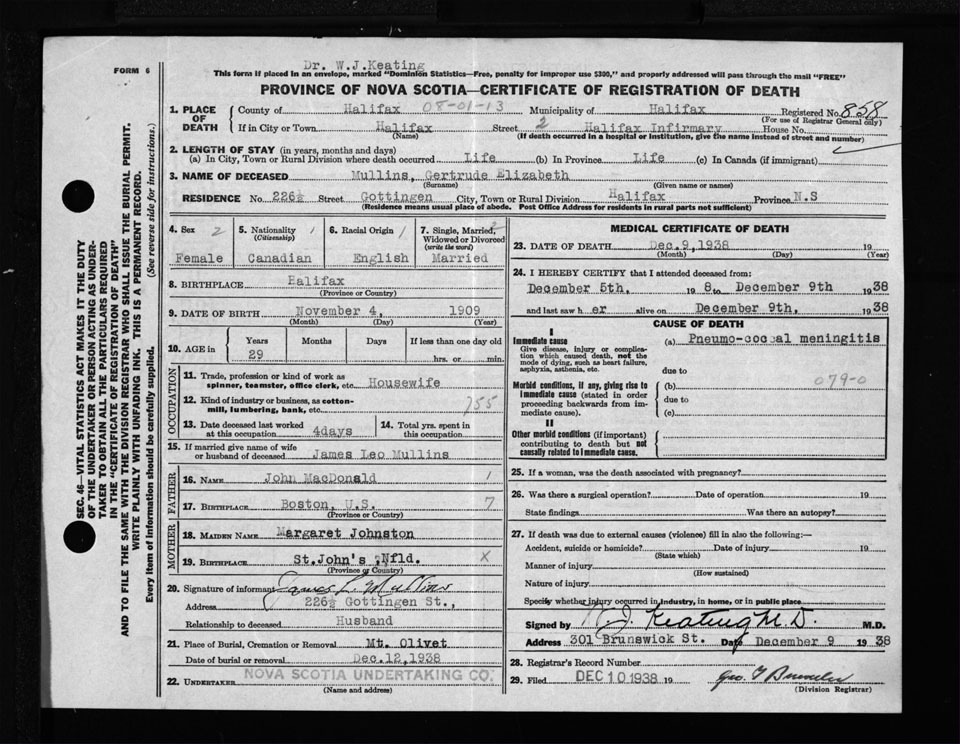 Dr. W.J.Keating
FORM 6
This form if placed in an envelope, marked "Dominion Statistics—Free, penalty for improper use $300," and properly addressed will pass through the mail "FREE"
PROVINCE OF NOVA SCOTIA—CERTIFICATE OF REGISTRATION OF DEATH
1. PLACE OF DEATH
County of Halifax 08-01-13 Municipality of Halifax Registered No. 858
(For use of Registrar General only)
If in City or Town Halifax Street 2 Halifax Infirmary House No.
(Name) (If death occurred in a hospital or institution, give the name instead of street and number)
2. LENGTH OF STAY (in years, months and days)
(a) In City, Town or Rural Division where death occurred Life (b) In Province Life (c) In Canada (if immigrant)
3. NAME OF DECEASED Mullins, Gertrude Elizabeth
(Surname) (Given name or names)
RESIDENCE No. 226½ Street Gottingen City, Town or Rural Division Halifax Province N.S
(Residence means usual place of abode. Post Office Address for residents in rural parts not sufficient)
4. Sex 2
Female
5. Nationality 1
(Citizenship)
Canadian
6. Racial Origin 1
English
7. Single, Married, Widowed or Divorced
(write the word)
Married
8. BIRTHPLACE Halifax
(Province or Country)
9. DATE OF BIRTH November 4, 1909
(Month) (Day) (Year)
10. AGE in
Years Months Days If less than one day old
29 hrs. or min.
OCCUPATION
11. Trade, profession or kind of work as spinner, teamster, office clerk, etc. Housewife
12. Kind of industry or business, as cotton-mill, lumbering, bank, etc. 755
13. Date deceased last worked at this occupation 4days
14. Total yrs. spent in this occupation
15. If married give name of wife or husband of deceased James Leo Mullins
FATHER
16. NAME John MacDonald 1
17. BIRTHPLACE Boston, U.S. 7
(Province or Country)
MOTHER
18. MAIDEN NAME Margaret Johnston
19. BIRTHPLACE St.John's ,Nfld. X
(Province or Country)
20. Signature of informant James L. Mullins
Address 226½ Gottingen St.,
Relationship to deceased Husband
21. Place of Burial, Cremation or Removal Mt. Olivet
Date of burial or removal Dec.12,1938
22. UNDERTAKER NOVA SCOTIA UNDERTAKING CO.
(Name and address)
MEDICAL CERTIFICATE OF DEATH
23. DATE OF DEATH Dec.9,1938 19
(Month) (Day) (Year)
24. I HEREBY CERTIFY that I attended deceased from:
December 5th, 19 8 to December 9th 1938
and last saw h er alive on December 9th, 1938
CAUSE OF DEATH
I
Immediate cause
Give disease, injury or complication which caused death, not the mode of dying, such as heart failure, asphyxia, asthenia, etc.
(a) Pneumo-coccal meningitis
due to
Morbid conditions, if any, giving rise to immediate cause (stated in order proceeding backwards from immediate cause).
(b) 079-0
due to
(c)
II
Other morbid conditions (if important) contributing to death but not causally related to immediate cause.
25. If a woman, was the death associated with pregnancy?
26. Was there a surgical operation? Date of operation 19
State findings Was there an autopsy?
27. If death was due to external causes (violence) fill in also the following:—
Accident, suicide or homicide? Date of injury 19
(State which)
Manner of injury
(How sustained)
Nature of injury
Specify whether injury occurred in industry, in home, or in public place
Signed by W.J. Keating M.D. M.D.
Address 301 Brunswick St. Date December 9 1938
28. Registrar's Record Number
29. Filed DEC 10 1938 19
(Division Registrar)
SEC. 46—VITAL STATISTICS ACT MAKES IT THE DUTY
OF THE UNDERTAKER OR PERSON ACTING AS UNDER-
TAKER TO OBTAIN ALL THE PARTICULARS REQUIRED
IN THE "CERTIFICATE OF REGISTRATION OF DEATH"
AND TO FILE THE SAME WITH THE DIVISION REGISTRAR WHO SHALL ISSUE THE BURIAL PERMIT.
WRITE PLAINLY WITH UNFADING INK. THIS IS A PERMANENT RECORD.
Every item of information should be carefully supplied. (See reverse side for instructions.)